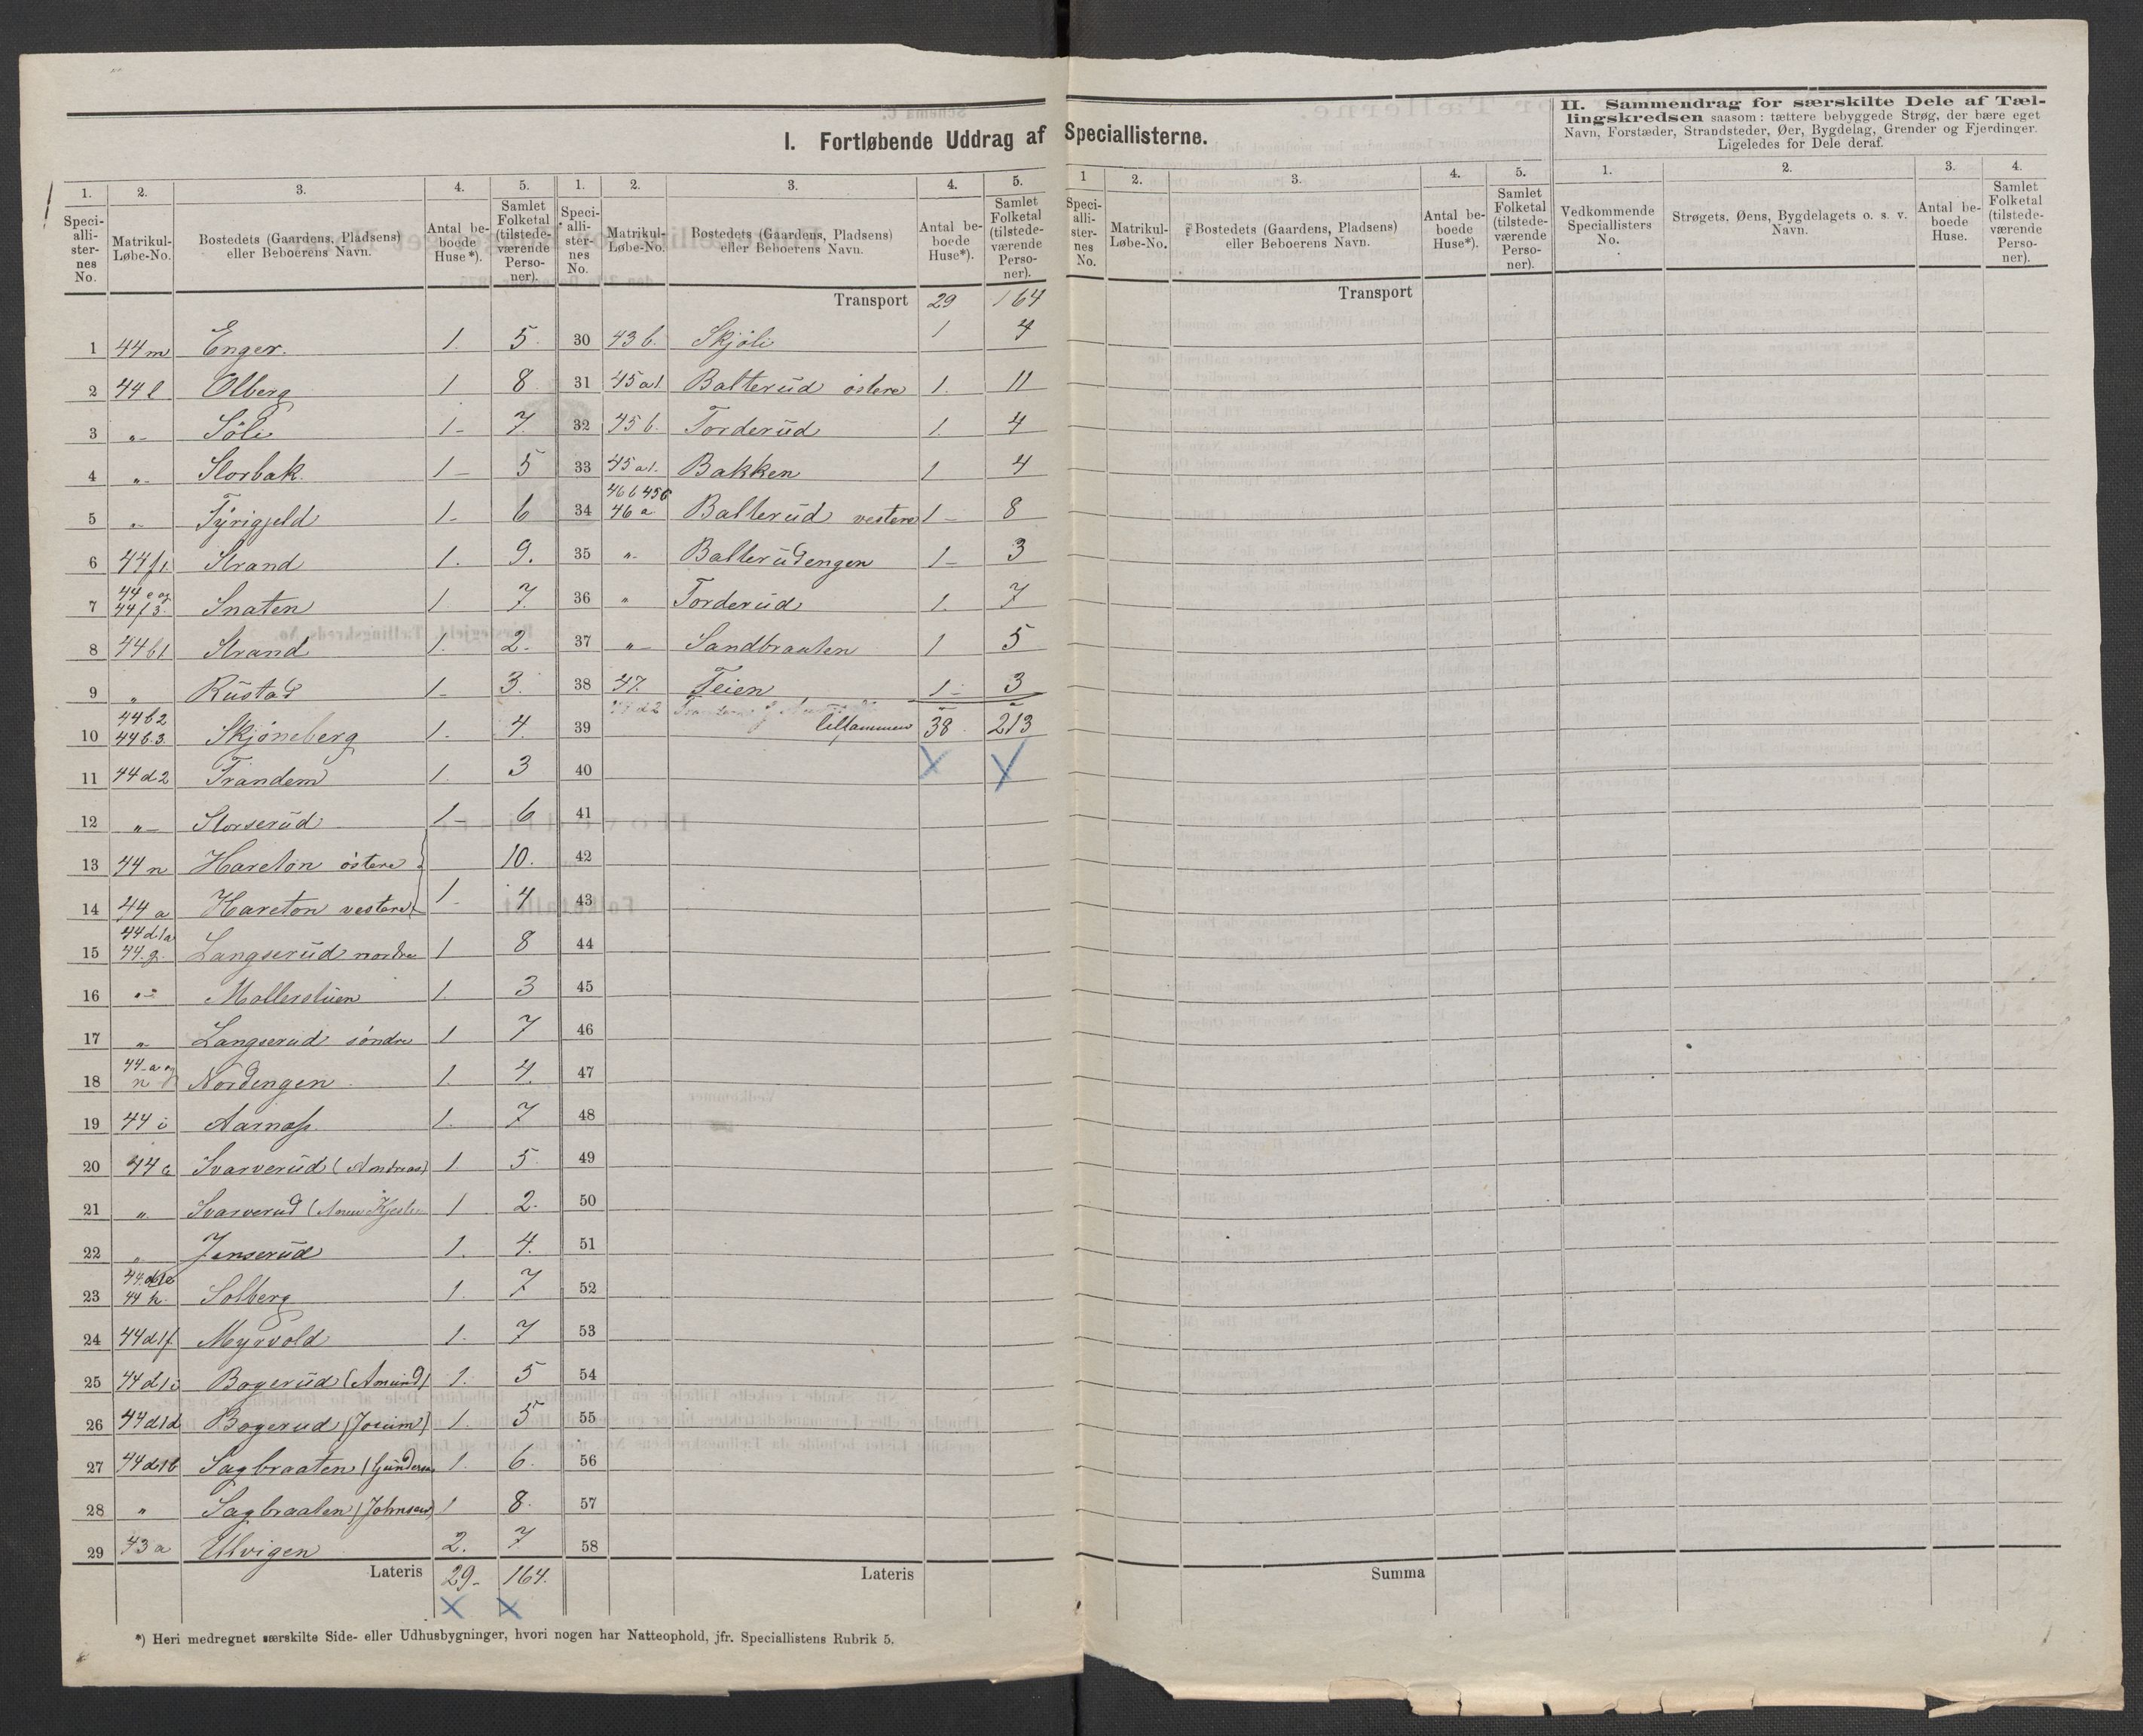 I. Fortløbende Uddrag af Speciallisterne.
II. Sammendrag for særskilte Dele af Tæl-
lingskredsen saasom: tættere bebyggede Strøg, der bære eget
Navn, Forstæder, Strandsteder, Øer, Bygdelag, Grender og Fjerdinger.
Ligeledes for Dele deraf.
1. 2. 3. 4. 5. 1. 2. 3. 4. 5. 1 2. 3. 4. 5. 1. 2. 3. 4.
Speci-alli-ster-nes No. Matrikul-Løbe-No. Bostedets (Gaardens, Pladsens) eller Beboerens Navn. Antal be-boede Huse*). Samlet Folketal (tilstede-værende Perso-ner).
Speci-alli-ster-nes No. Matrikul-Løbe-No. Bostedets (Gaardens, Pladsens) eller Beboerens Navn. Antal be-boede Huse*). Samlet Folketal (tilstede-værende Perso-ner).
Speci-alli-ster-nes No. Matrikul-Løbe-No. Bostedets (Gaardens, Pladsens) eller Beboerens Navn. Antal be-boede Huse*). Samlet Folketal (tilstede-værende Perso-ner).
Vedkommende Speciallisters No. Strøgets, Øens, Bygdelagets o. s. v. Navn. Antal be-boede Huse. Samlet Folketal (tilstede-værende Perso-ner).
1 44 m Enger. 1. 5.
2 44 l Olberg 1 8
3 „ Söli 1 - 7.
4 „ Storbak. 1 - 5
5 „ Tyrigjeld 1 - 6
6 44 f 1 Strand 1. 9.
7 44 e og 44 f 3. Snaten 1 7.
8 44 b 1 Strand 1. 2.
9 „ Rustad 1 - 3.
10 44 b 2 44 b. 3. Skjöneberg 1. 4.
11 44 d 2 Trandem 1. 3
12 „ Storserud 1 - 6
13 44 n Hareton östere 10.
14 44 a Hareton vestere 1 - 4
15 44 d 1 a 44. g. Langserud nordre 1 8
16 „ Mollerstuen 1. 3
17 „ Langserud söndre 1 7
18 44 a og n Nordengen 1. 4.
19 44 i Aarnæs 1. 7
20 44 c Svarverud (Andreas) 1 5
21 „ Svarverud 1 2.
22 „ Jenserud 1. 4.
23 44 h. Solberg 1. 7
24 44 d 1 f. Myrvold 1. 7
25 44 d 1 i Bogerud (Amund) 1. 5
26 44 d 1 d Bogerud (Jocum) 1. 5
27 44 d 1 b Sagbraaten (Gundersen 1. 6.
28 „ Sagbraaten (Johnsen) 1 8.
29 43 a Ulvigen 2. 7
Lateris 29. 164.
Transport 29 164
30 43 b. Skjöli 1 4
31 45 a 1. Balterud östere 1. 11
32 45 b. Torderud 1. 4
33 45 a 1. Bakken 1 4
34 46 b 45 c 46 a Balterud vestere 1 - 8
35 „ Balterudengen 1 - 3
36 „ Torderud 1. 7
37 „ Sandbraaten 1 5
38 47. Teien 1 - 3
39 tilsammen 38 213
40
41
42
43
44
45
46
47
48
49
50
51
52
53
54
55
56
57
58
Lateris
Transport
Summa
*) Heri medregnet særskilte Side- eller Udhusbygninger, hvori nogen har Natteophold, jfr. Speciallistens Rubrik 5.